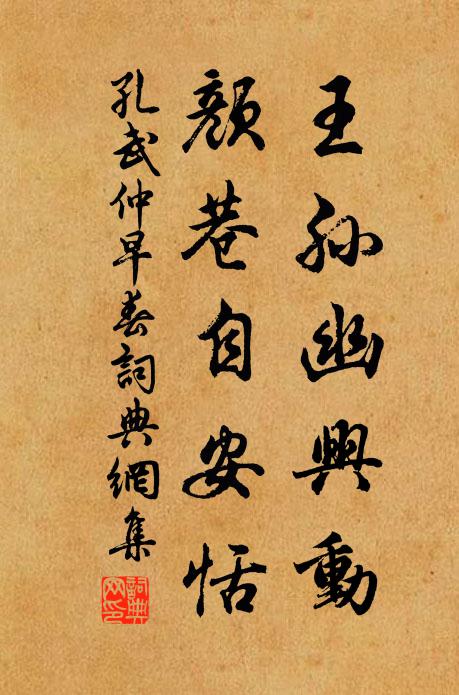 王孫幽興動
顏巷自安恬
孔武仲早春詞典網集
詞典網印